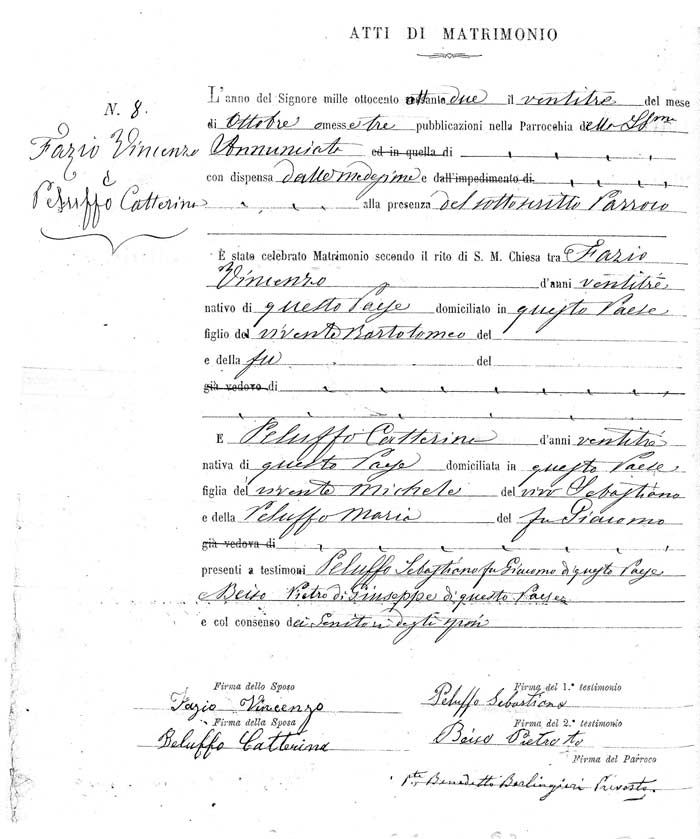 ATTI DI MATRIMONIO
N. 8.
Fazio Vincenzo
e
Peluffo Catterina
L'anno del Signore mille ottocento ottantadue il ventitre del mese
di Ottobre omesse tre pubblicazioni nella Parrocchia della SS.ma
Annunciata ed in quella di
con dispensa dalle medesime e dall'impedimento di
alla presenza del sottoscritto Parroco
È stato celebrato Matrimonio secondo il rito di S. M. Chiesa tra Fazio
Vincenzo d'anni ventitrè
nativo di questo Paese domiciliato in questo Paese
figlio del vivente Bartolomeo del
e della fu del
già vedovo di
E Peluffo Catterina d'anni ventitrè
nativa di questo Paese domiciliata in questo Paese
figlia del vivente Michele del vivo Sebastiano
e della Peluffo Maria del fu Giacomo
già vedova di
presenti a testimoni Peluffo Sebastiano fu Giacomo di questo Paese
Beiso Pietro di Giuseppe di questo Paese
e col consenso dei Genitori degli sposi
Firma dello Sposo Firma del 1.º testimonio
Fazio Vincenzo Peluffo Sebastiano
Firma della Sposa Firma del 2.º testimonio
Peluffo Catterina Beiso Pietro
Firma del Parroco
Benedetto Berlingieri Prevosto